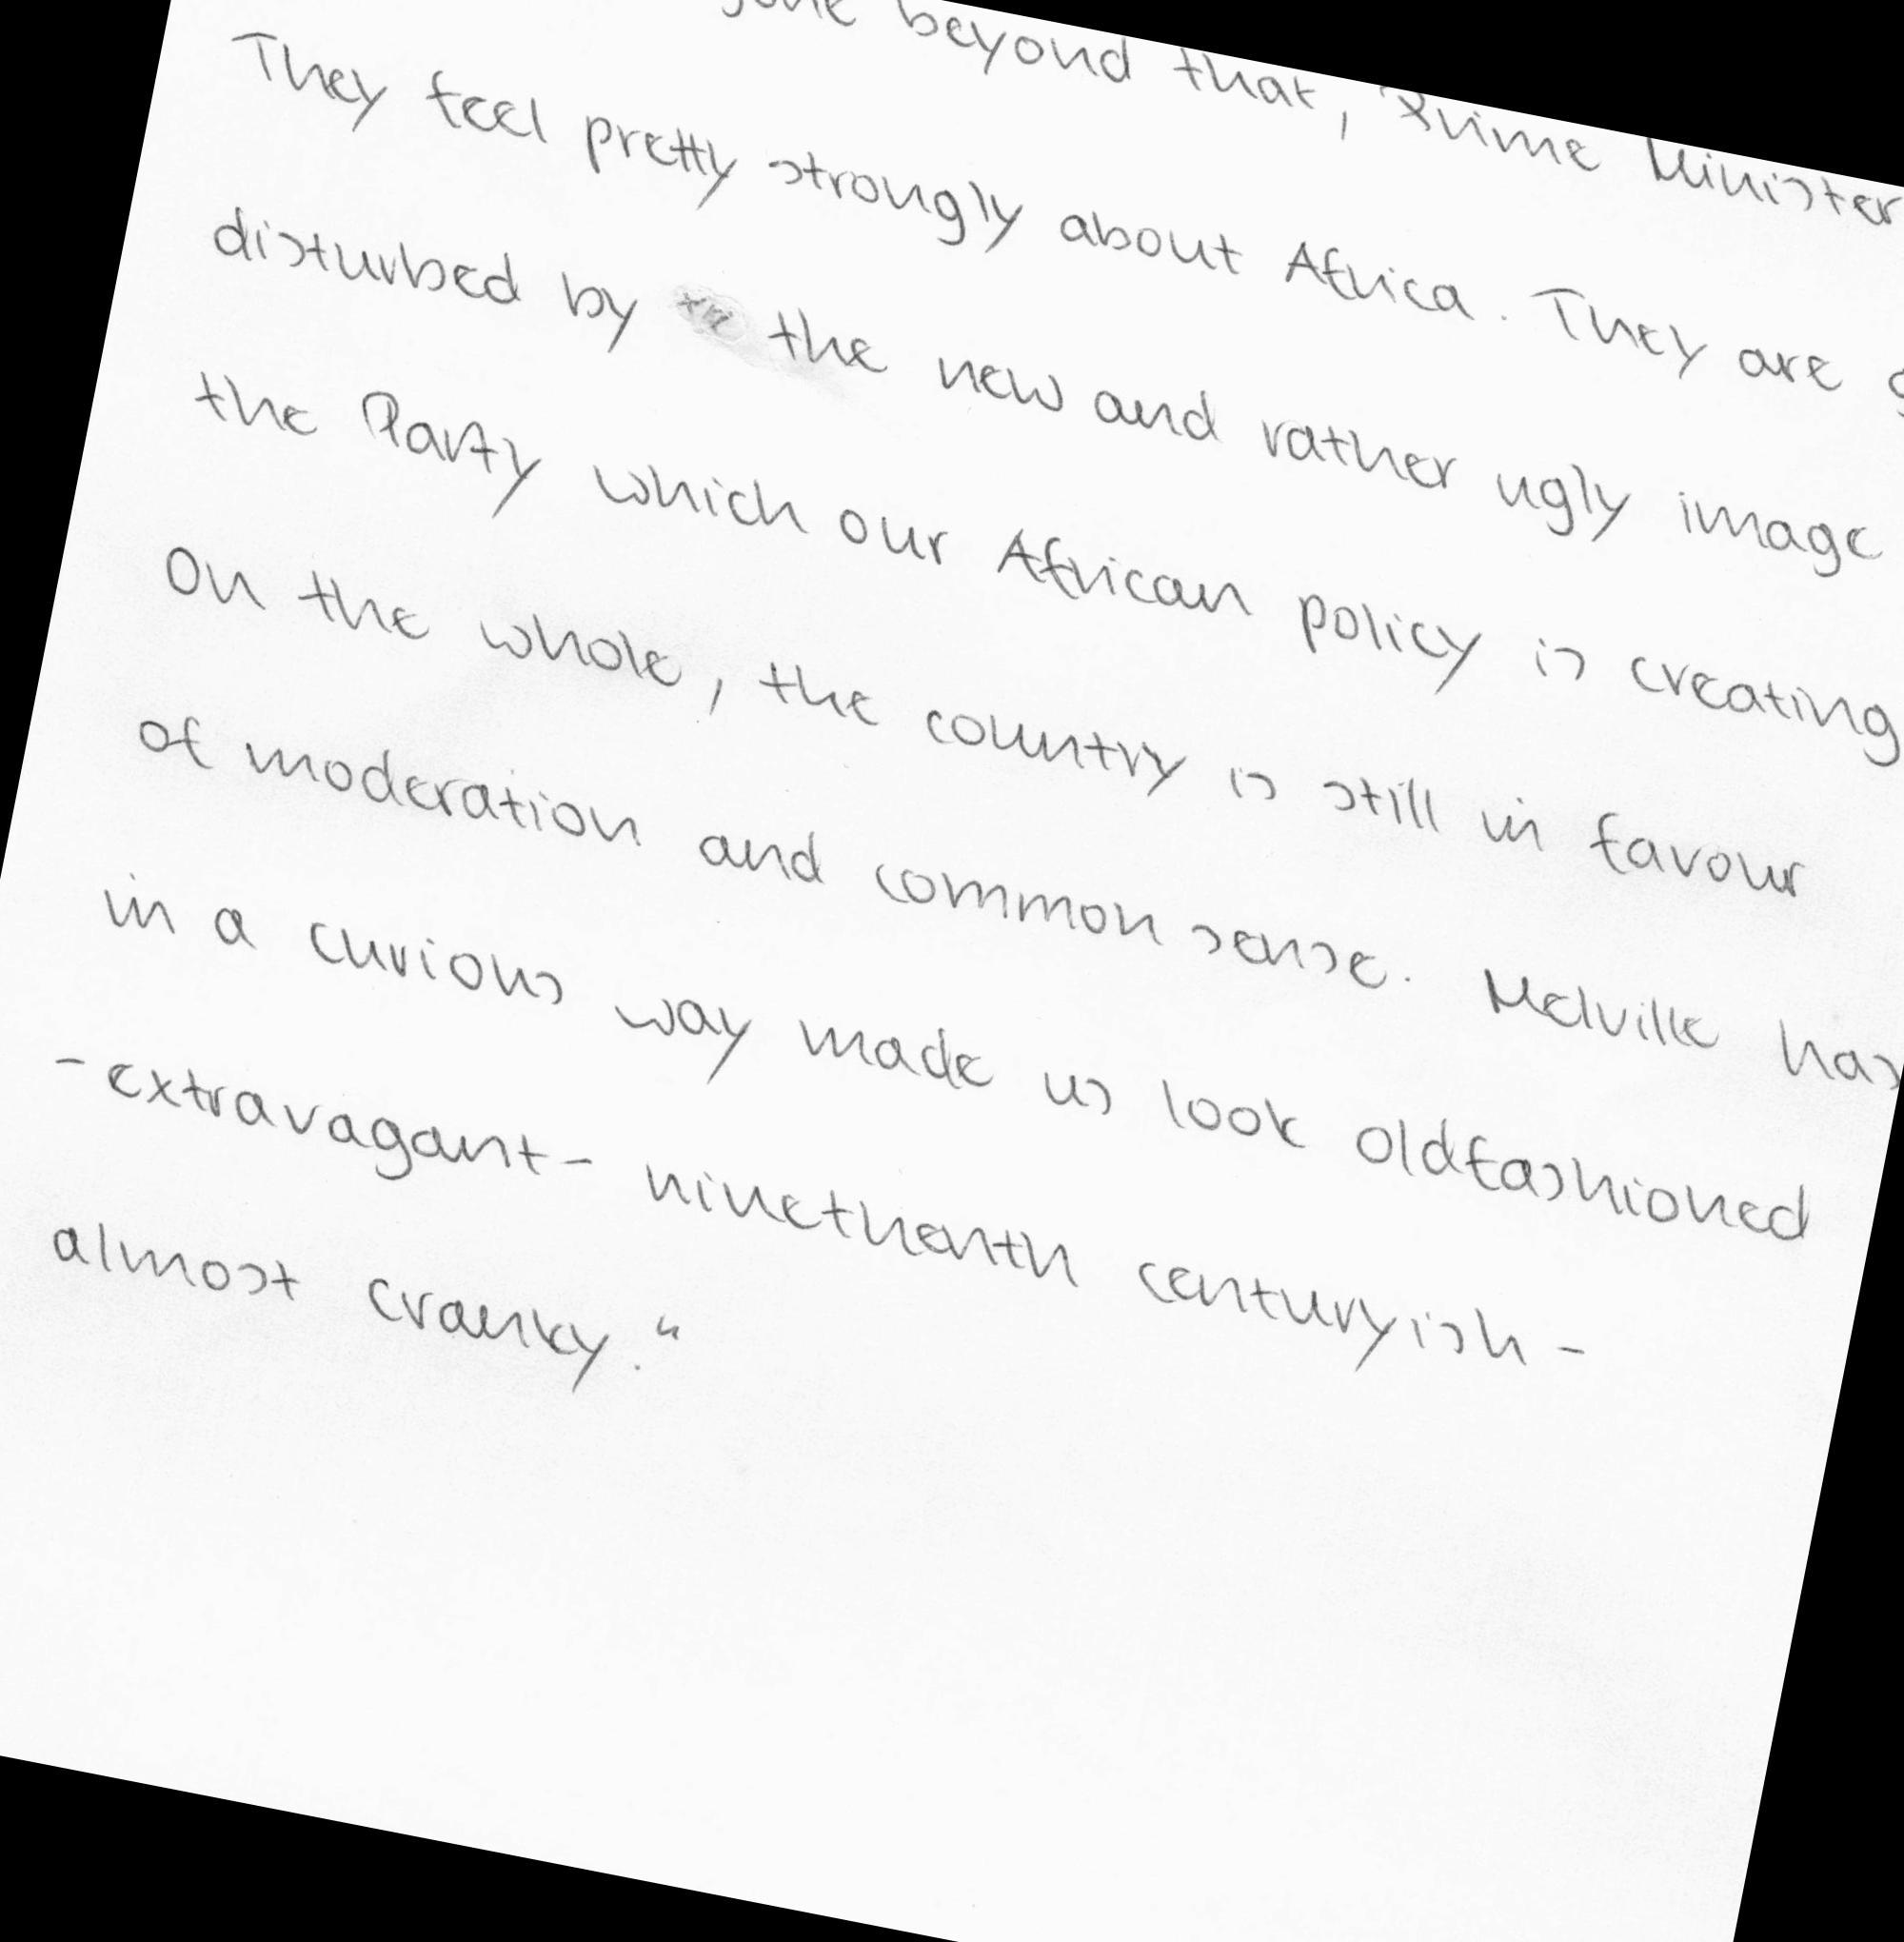 gone beyond that, Prime Minister
They feel pretty strongly about Africa. They are
disturbed by the new and rather ugly image
the Party which our African policy is creating
On the whole, the country is still in favour
of moderation and common sense. Melville has
in a curious way made us look oldfashioned
- extravagant - ninetheenth centuryish -
almost cranky."